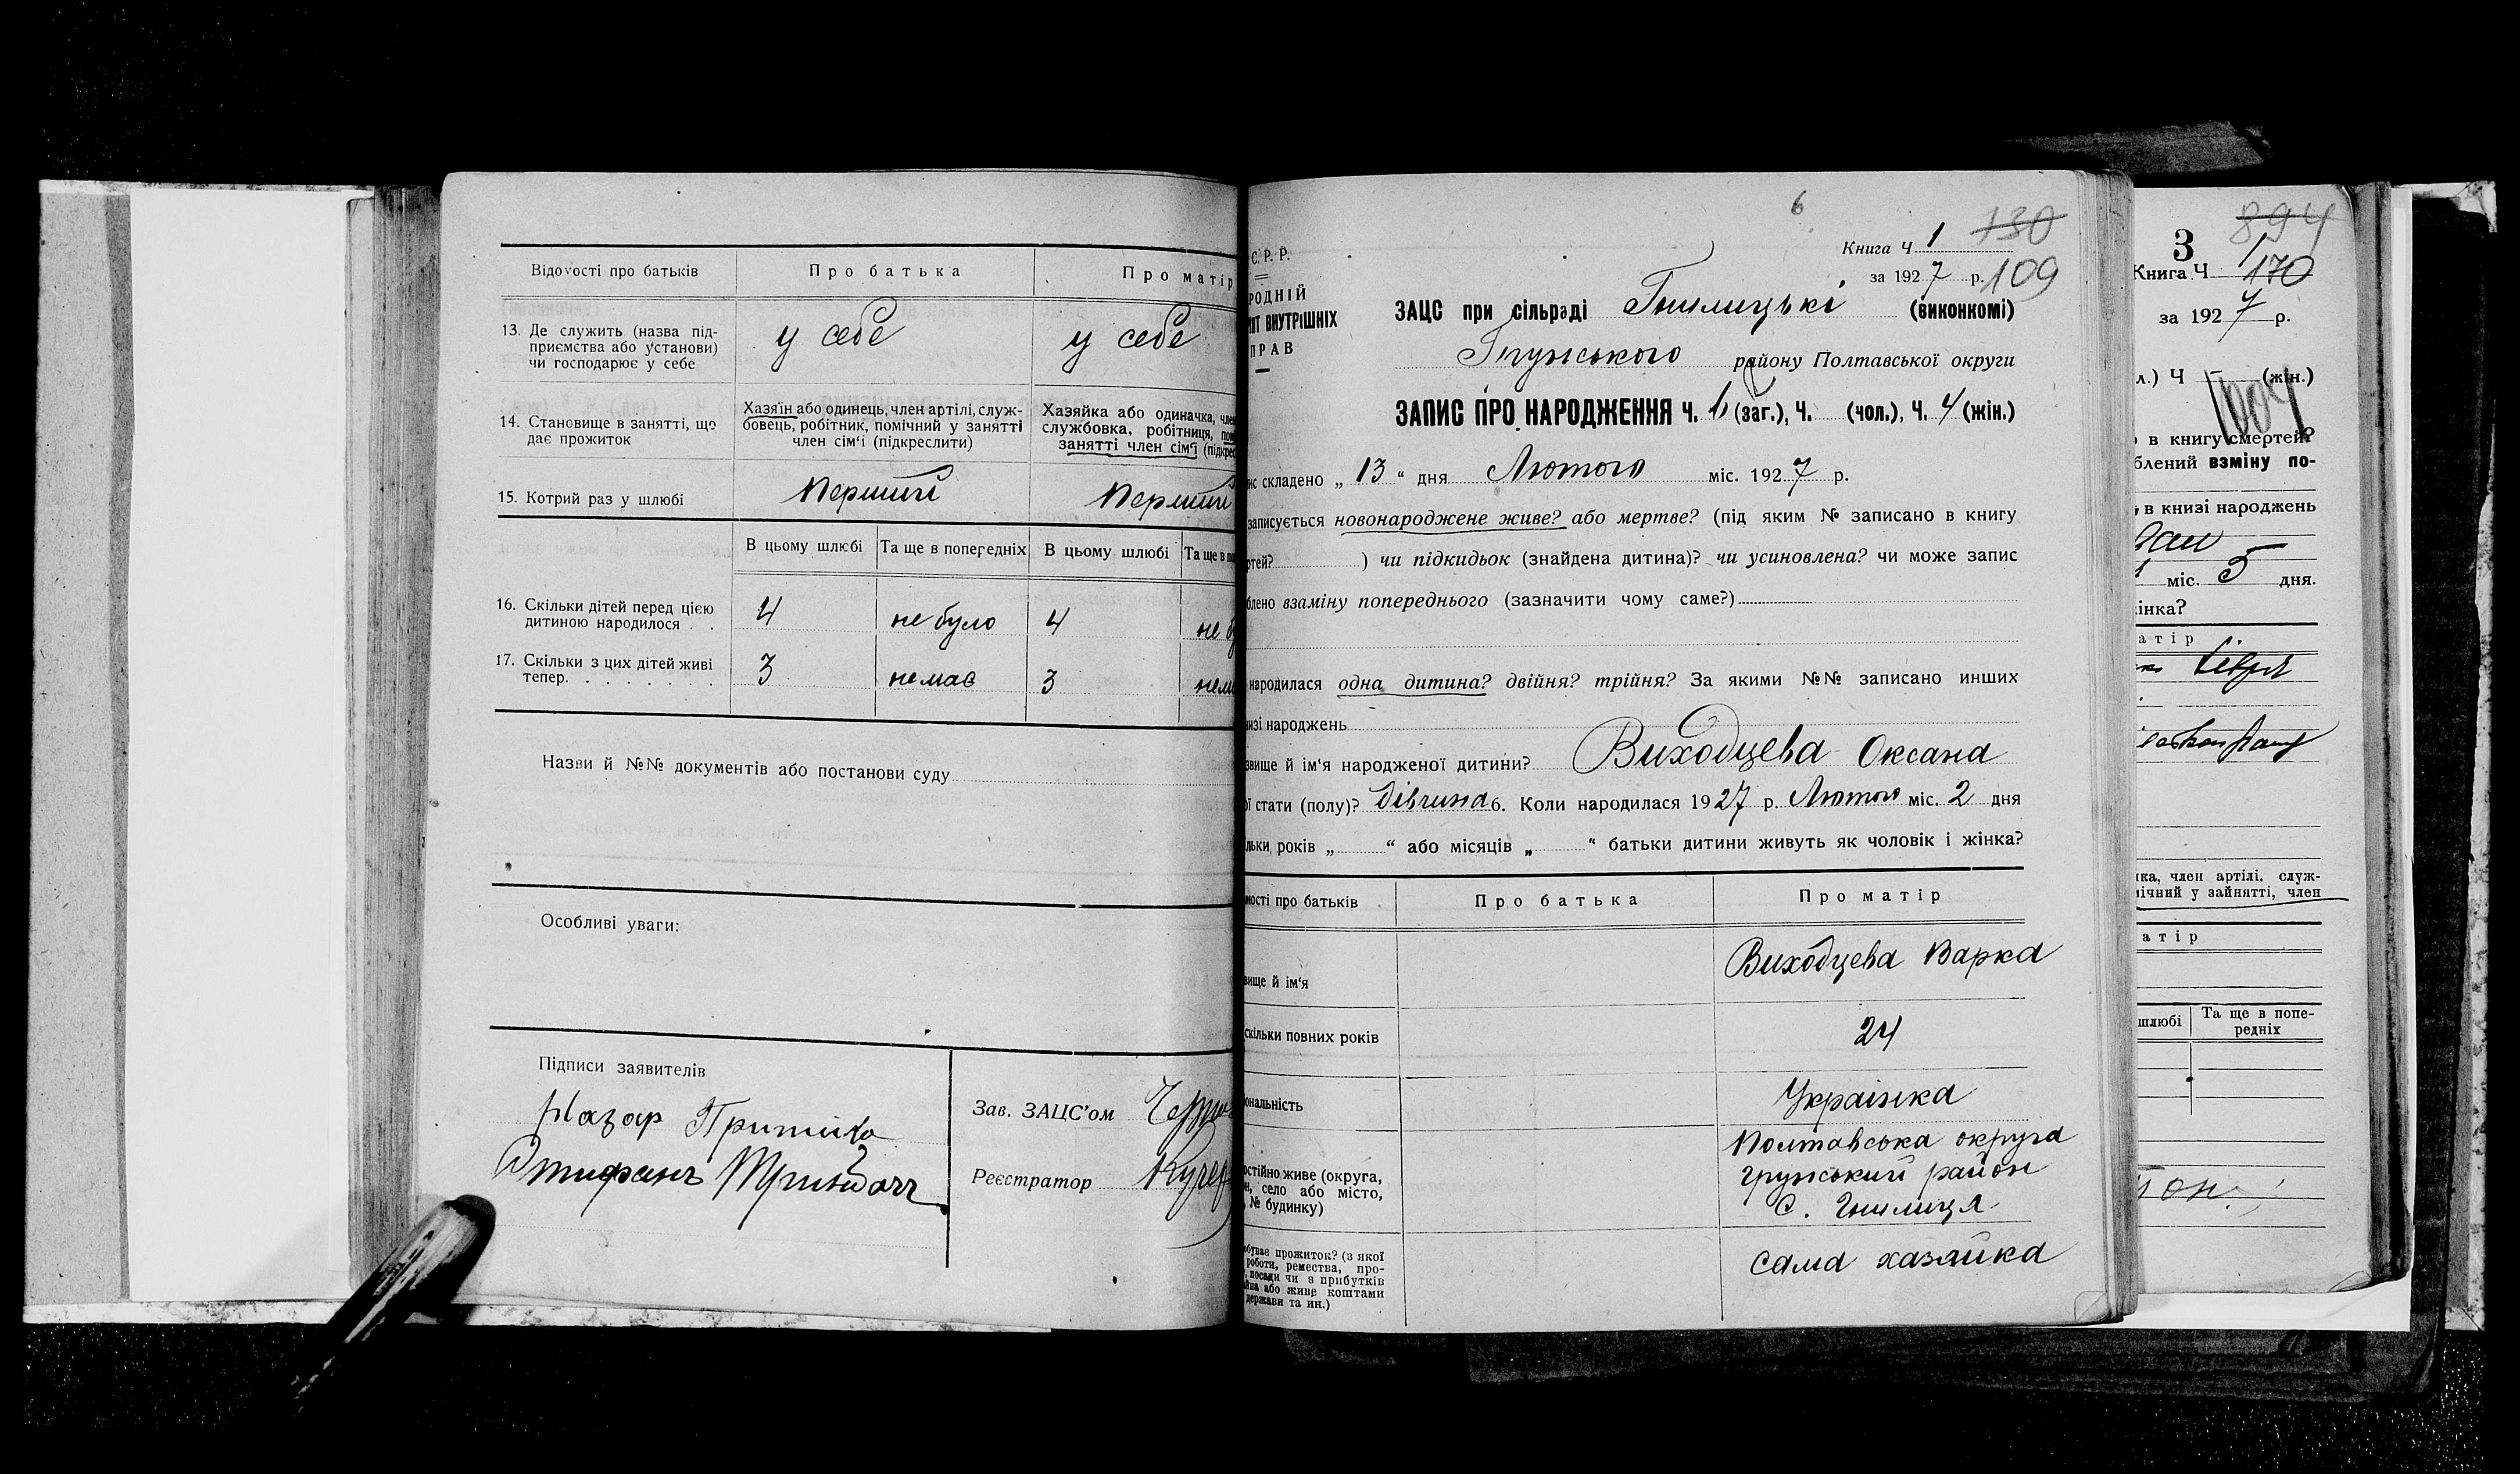 Відомості про батьків
Про батька
Про матір
13. Де служить (назва під-
приємства або установи)
чи господарює у себе
у себе
у себе
14. Становище в занятті, що
дає прожиток
Хазяїн або одинець, член артілі, служ-
бовець, робітник, помічний у занятті
член сім'ї (підкреслити)
Хазяйка або одиначка,
службовка, робітниця,
занятті член сім'ї
15. Котрий раз у шлюбі
Перший
Перший
В цьому шлюбі
Та ще в попередніх
В цьому шлюбі
Та ще в
16. Скільки дітей перед цією
дитиною народилося . .
4
не було
4
не
17. Скільки з цих дітей живі
тепер. . . . . . . .
3
немає
3
Назви й №№ документів або постанови суду
Особливі уваги:
Підписи заявителів
Назар
Зав. ЗАЦС'ом
Реєстратор
6
С.Р.Р.
ВНУТРІШНІХ
ПРАВ
Книга Ч 1 130
за 1927 р. 109
ЗАЦС при сільраді Гнилицькі (виконкомі)
Грунського району Полтавської округи
ЗАПИС ПРО НАРОДЖЕННЯ Ч. 6 (заг.), Ч. (чол.), Ч. 4 (жін.)
складено „ 13 “ дня Лютого міс. 1927 р.
записується новонароджене живе? або мертве? (під яким № записано в книгу
) чи підкидьок (знайдена дитина)? чи усиновлена? чи може запис
взаміну попереднього (зазначити чому саме?)
народилася одна дитина? двійня? трійня? За якими №№ записано инших
народжень
й ім'я народженої дитини? Виходцева Оксана
стати (полу)? Дівчина 6. Коли народилася 1927 р. Лютого міс. 2 дня
років „ “ або місяців „ “ батьки дитини живуть як чоловік і жінка?
про батьків
Про батька
Про матір
й ім'я
Виходцева Варка
скільки повних років
24
Українка
живе (округа,
село або місто,
№ будинку)
Полтавська округа
грунський район
с. Гнилиця
прожиток? (з якої
роботи, ремества, про-
посади чи з прибутків
або живе коштами
держави та ин.)
сама хазяйка
3
894
Книга Ч 1
170
за 1927 р.
Ч (жін.)
в книгу смертей?
взміну по-
в книзі народжень
міс. 5 дня.
член артілі, служ-
у зайнятті, член
шлюбі
Та ще в попе-
редніх